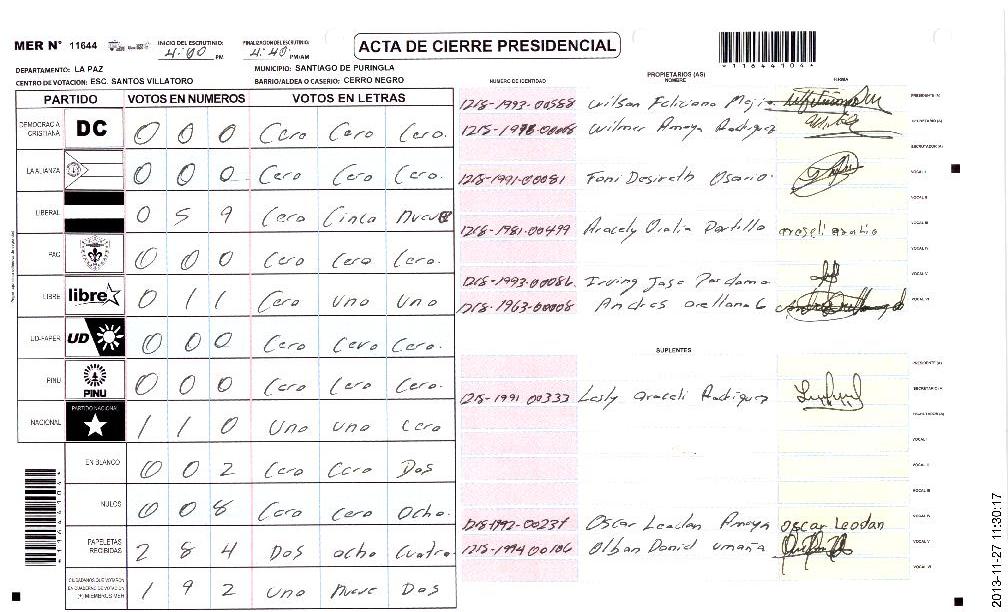 MER N° 11644
INICIO DEL ESCRUTINIO:
4:00 PM
FINALIZACION DEL ESCRUTINIO:
4:40 PM/AM
ACTA DE CIERRE PRESIDENCIAL
*11644104*
DEPARTAMENTO: LA PAZ
MUNICIPIO: SANTIAGO DE PURINGLA
CENTRO DE VOTACION: ESC. SANTOS VILLATORO
BARRIO/ALDEA O CASERIO: CERRO NEGRO
PARTIDO VOTOS EN NUMEROS VOTOS EN LETRAS
DEMOCRACIA CRISTIANA DC 0 0 0 Cero Cero Cero.
LA ALIANZA 0 0 0 Cero Cero Cero.
LIBERAL 0 5 9 Cero Cinco Nueve
PAC 0 0 0 Cero Cero Cero.
LIBRE libre 0 1 1 Cero Uno Uno
UD-FAPER UD 0 0 0 Cero Cero Cero.
PINU PINU 0 0 0 Cero Cero Cero.
NACIONAL PARTIDO NACIONAL 1 1 0 Uno Uno Cero
EN BLANCO 0 0 2 Cero Cero Dos
NULOS 0 0 8 Cero Cero Ocho.
PAPELETAS RECIBIDAS 2 8 4 Dos ocho Cuatro
CIUDADANOS QUE VOTARON EN CUADERNO DE VOTACION (+) MIEMBROS MER 1 9 2 Uno Nueve Dos
PROPIETARIOS (AS)
NUMERO DE IDENTIDAD NOMBRE FIRMA
1215-1993-00558 Wilson Feliciano Mejia PRESIDENTE (A)
1215-1978-00008 Wilmer Amaya Rodriguez SECRETARIO (A)
ESCRUTADOR (A)
1215-1991-00081 Fani Desireth Osorio. VOCAL I
VOCAL II
1215-1981-00499 Aracely Oralia Portillo VOCAL III
VOCAL IV
1215-1993-00086 Irving Jose Perdomo VOCAL V
1215-1963-00008 Andres orellana G VOCAL VI
SUPLENTES
PRESIDENTE (A)
1215-1991 00333 Lesly araceli Rodriguez SECRETARIO (A)
ESCRUTADOR (A)
VOCAL I
VOCAL II
VOCAL III
1215-1992-00237 Oscar Leodan Amaya oscar Leodan VOCAL IV
1215-1994-00106 Olban Donid umaña VOCAL V
VOCAL VI
*11644104*
2013-11-27 11:30:17